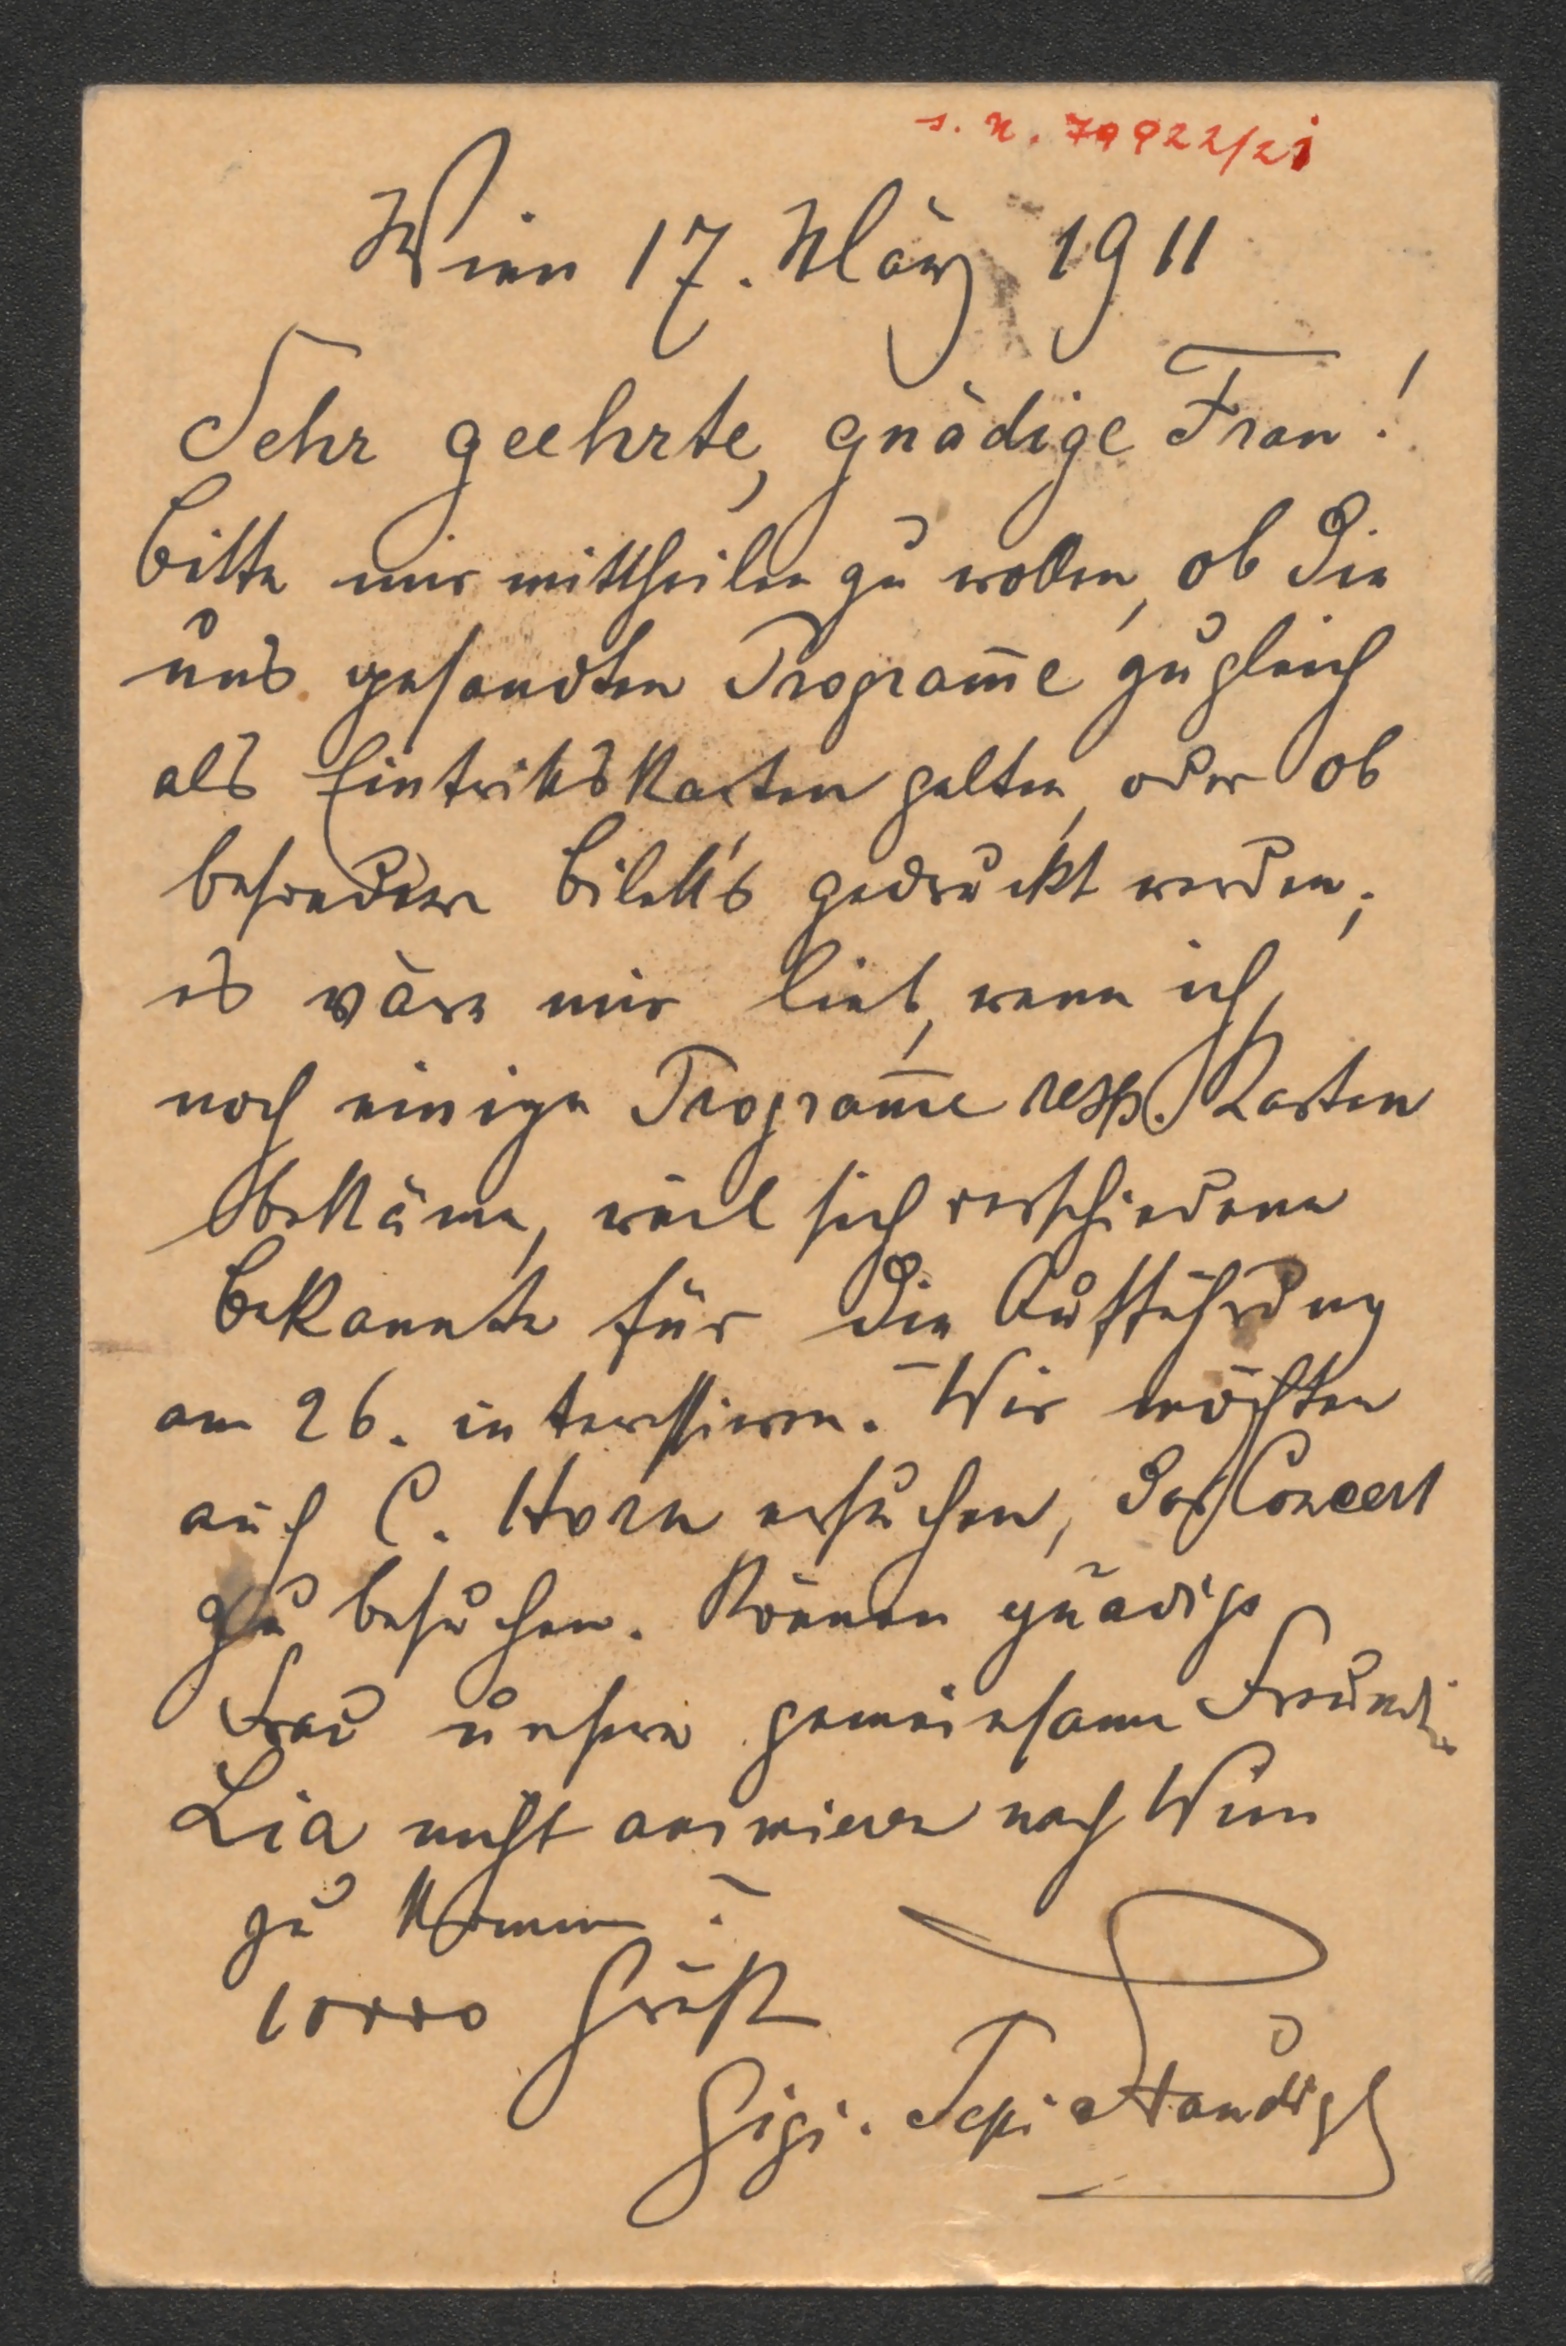 s. n. 70922/21
Wien 17. März 1911
Sehr geehrte, gnädige Frau!
Bitte mir mittheilen zu wollen, ob die
uns gesandten Programme zugleich
als Eintrittskarten gelten, oder ob
besondere Bilett's gedruckt werden;
es wäre mir lieb, wenn ich
noch einige Programme resp. Karten
bekäme, weil sich verschiedene
Bekannte für die Aufführung
am 26. interessieren. Wir möchten
auch C. Horn ersuchen, das Concert
zu besuchen. Können gnädige
Frau unsere gemeinsame Freundin
Lia nicht animieren nach Wien
zu kommen?
10000 Grüße
Gigi. Pepi Standigl